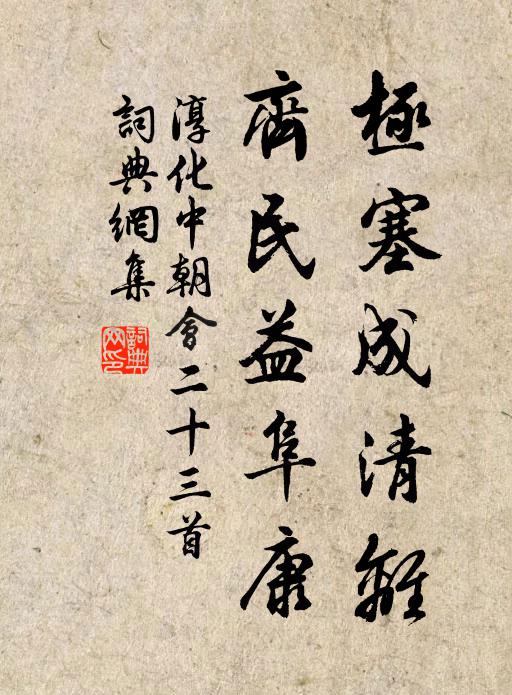 極塞成清離
齊民益阜康
淳化中朝會二十三首
詞典網集
詞典
网印